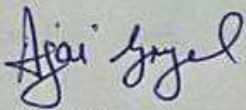 Ajai Goyal